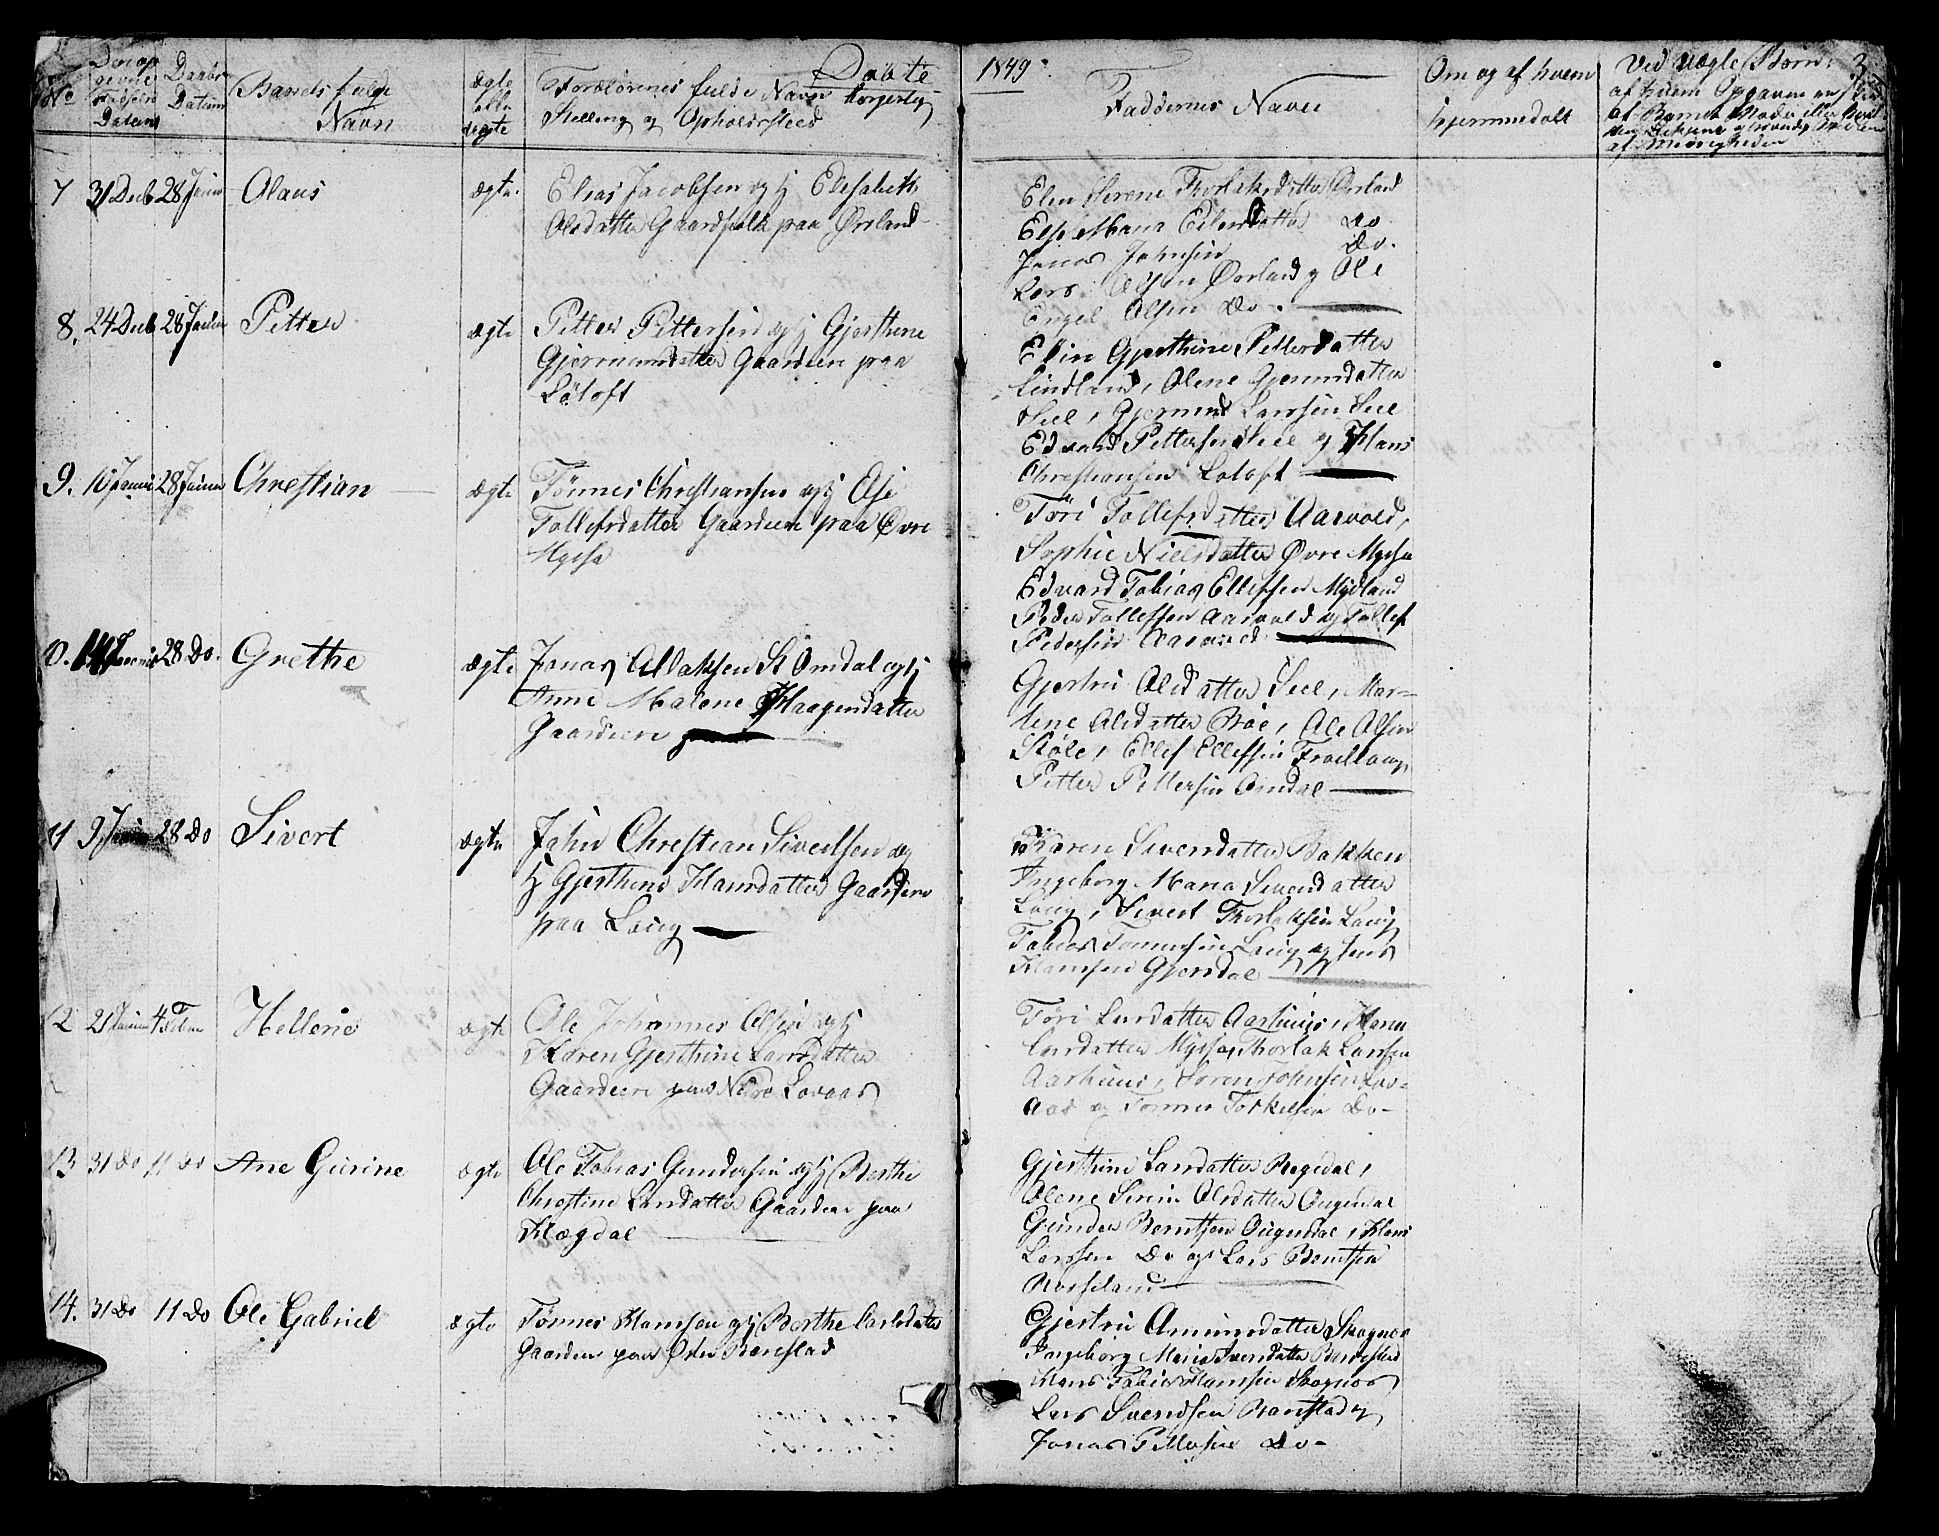 Døbte
1849
3
No
Datum
Daabs
Datum
Barnets fulde
Navn
ægte
eller
uægte
Forældrenes fulde Navn borgerlig
Stilling og Opholdssted
Faddernes Navn
Om og af hvem
hjemmedøbt
Ved uægte Børn
af hvem Opgaven
7 31 Decb 28 Januar Olaus ægte Elias Jacobsen og hj Elisabeth
Olsdatter Gaardfolk paa Ørsland
Elen Serene Thorlaksdatter Ørsland
Elsje Maria Eilertsdatter Do
Jonas Johnsen Do
Lars Olsen Ørsland og Ole
Engel Olsen Do
8. 24 Decb 28 Januar Petter ægte Petter Pettersen og hj Gjerthine
Gjermundsdatter Gaardeier paa
Løtoft
Elin Gjerthine Pettersdatter
Lindland, Olene Gjermundsdatter
Seel, Gjermund Larssen Seel
Edvard Pettersen Seel og Hans
Christiansen Løtoft
9. 10 Januar 28 Januar Christian ægte Tønnes Christiansen og hj Åse
Tollefsdatter Gaardeier paa Øvre
Myssa
Tøri Tollefsdatter Aarvold,
Sophie Nielsdatter Øvre Myssa
Edvard Tobias Ellefsen Mydland
Peder Tollefsen Aarvold og Tollef
Pedersen Aarvold
10. 14 Januar 28 Do. Grethe ægte Jonas Aslaksen St Omdal og hj
Anne Malene Haagensdatter
Gaardeiere
Gjertru Olsdatter Seel, Mar-
tene Olsdatter Broe, Ole Olsen
Støle, Ellef Ellefsen Frøitlaug,
Petter Pettersen Omdal
11 9 Januar 28 Do Sivert ægte John Christian Sivertsen og
hj Gjerthine Hansdatter Gaardeier
paa Laug
Karen Svendsdatter Bakken
Ingeborg Maria Svendsdatter
Laug, Sivert Thorlaksen Laug
Tobias Tønnesen Laug og Jens
Hansen Gjersdal
12 21 Januar 4 Februar Hellene ægte Ole Johannes Olsen og hj
Karen Gjerthine Larsdatter
Gaardeier paa Nedre Lovaas
Tøri Larsdatter Aarhuus, Hana
Larsdatter Myssa Thorlak Larssen
Aarhuus, Søren Johnsen Lov-
aas og Tønnes Torkelsen Do-
13 31 Do 11 Do Ane Gurine ægte Ole Tobias Gundersen og hj Berthe
Christine Larsdatter Gaardeier paa
Hægdal
Gjerthine Larsdatter Regedal,
Olene Serine Olsdatter Øugendal
Gunder Berntsen Øugendal, Hans
Larssen Do og Lars Berntsen
Rosseland
14. 31 Do 11 Do Ole Gabriel ægte Tønnes Hansen og hj Berthe Carlsdatter
Gaardeier paa Østre Barstad
Gjertru Amundsdatter Skognæs
Ingeborg Maria Svendsdatter Barstad
Hans Tobias Hansen Skognæs
Lars Svendsen Barstad og
Jonas Pettersen Do-